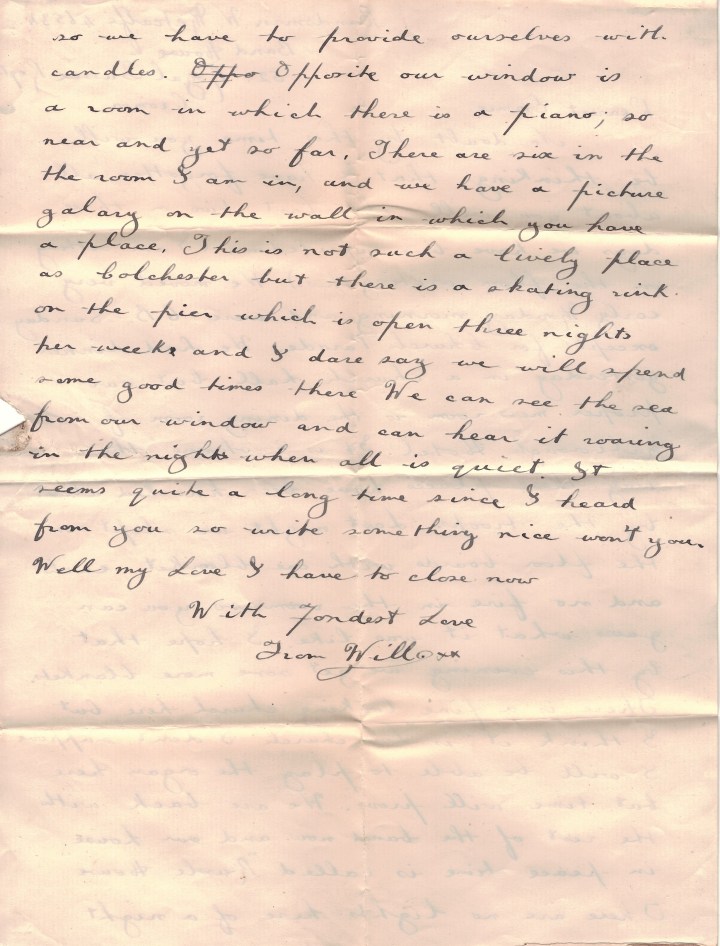 so we have to provide ourselves with
candles. Oppo Opposite our window is
a room in which there is a piano; so
near and yet so far. There are six in the
the room I am in, and we have a picture
galary on the wall in which you have
a place. This is not such a lively place
as Colchester but there is a skating rink
on the pier which is open three nights
per week and I dare say we will spend
some good times there We can see the sea
from our window and can hear it roaring
in the night when all is quiet. It
seems quite a long time since I heard
from you so write something nice won't you.
Well my Love I have to close now
With Fondest Love
From Will oxx